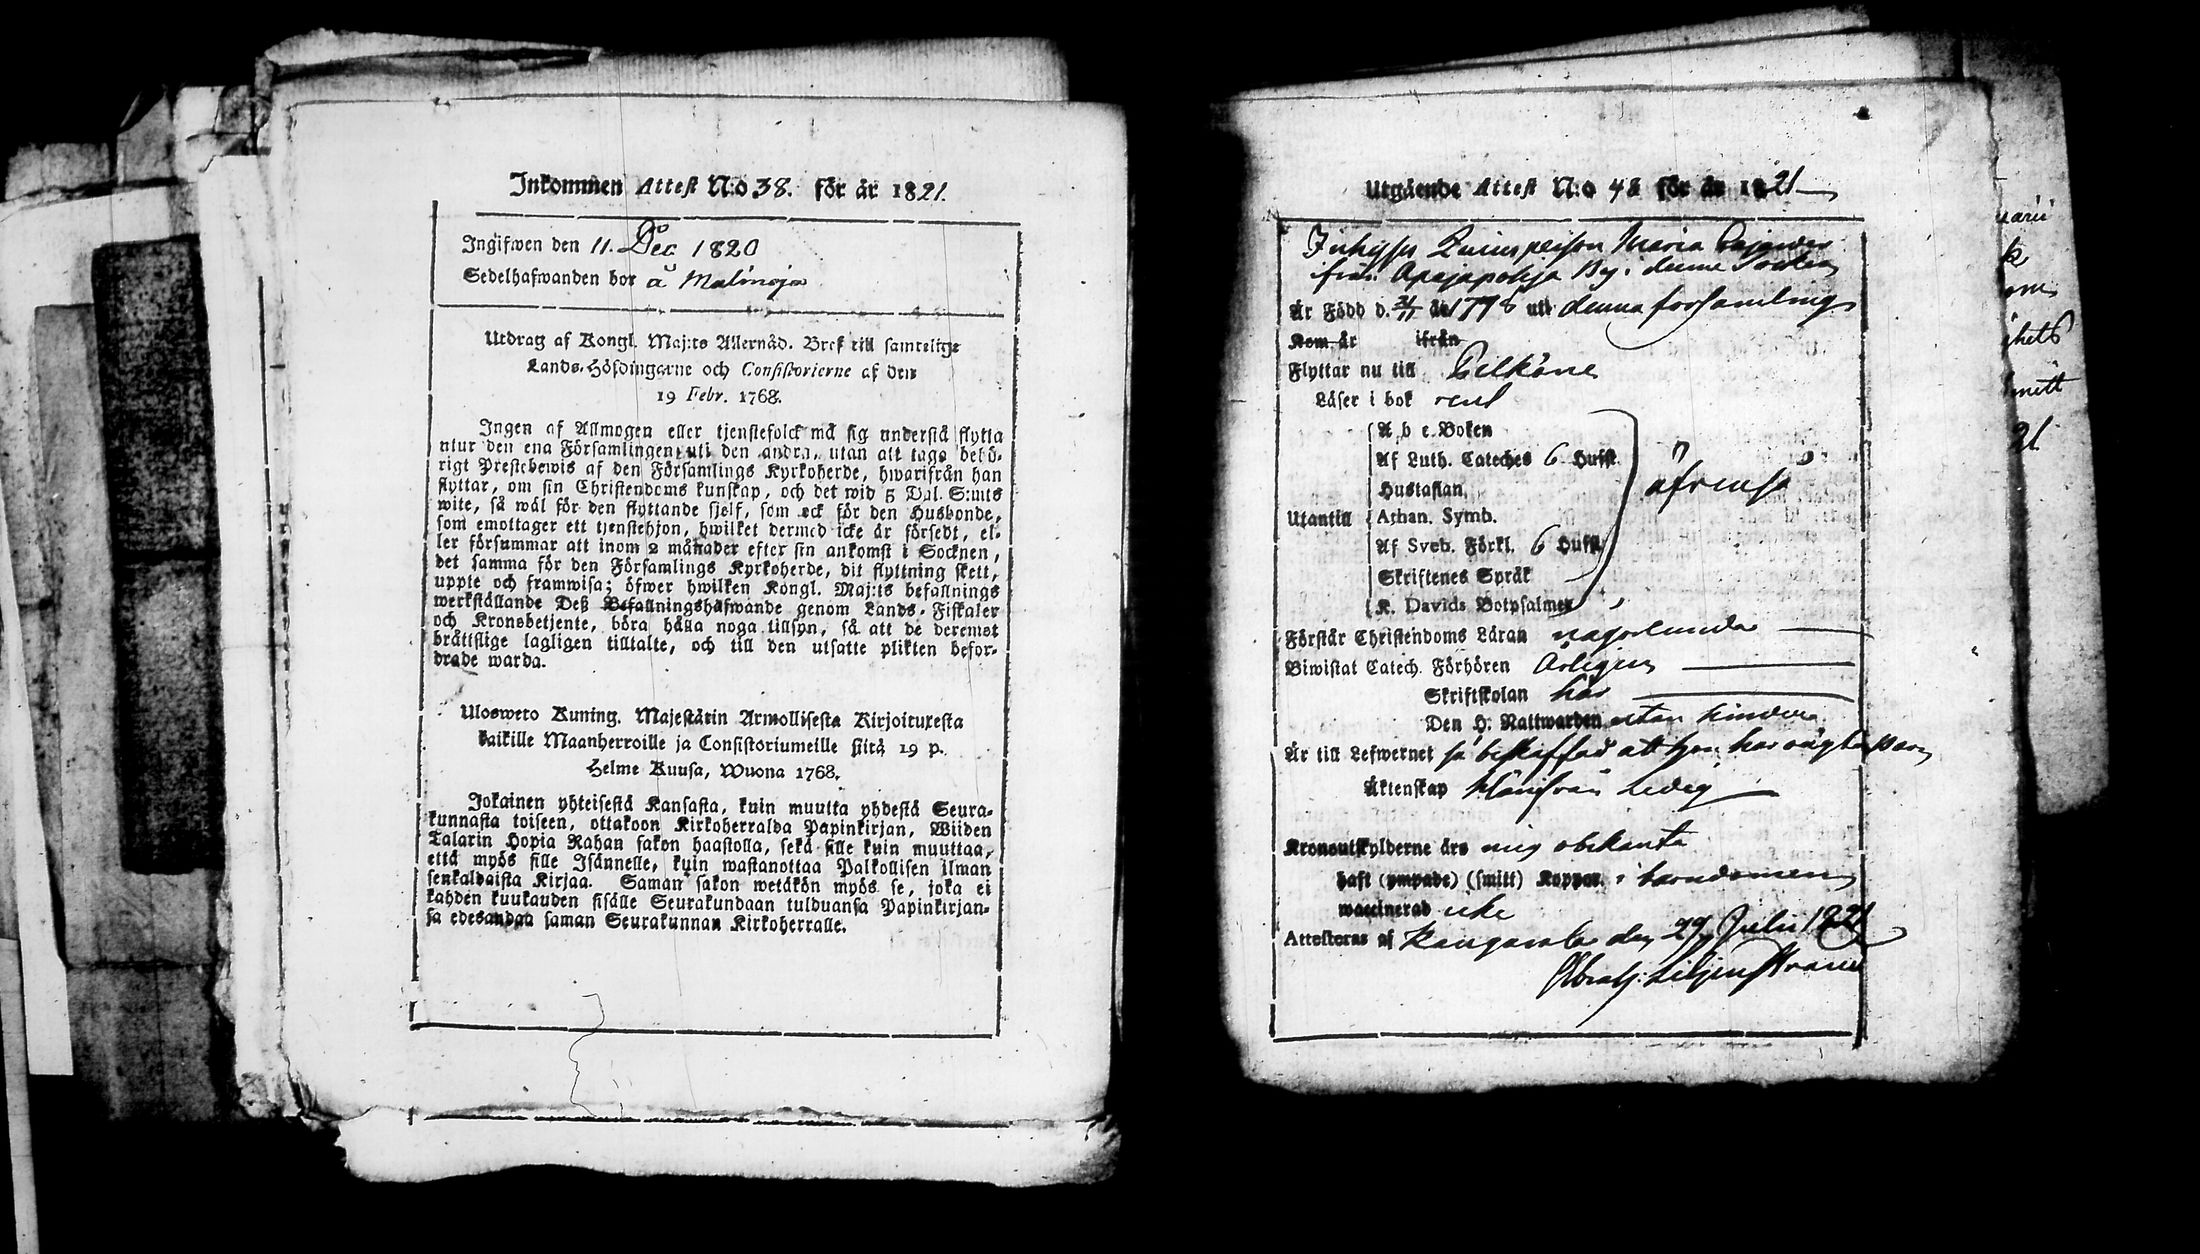 Inkommen Attest N:o 38. för år 1821.
Ingifwen den 11. Dec 1820
Sedelhafwanden bor å
Utdrag af Kongl. Maj:ts Allernåd. Bref till samtelige
Lands-Höfdingarne och Consistorierne af den
19 Febr. 1768.
Ingen af Allmogen eller tjenstefolck må sig understå flytta
utur den ena Församlingen uti den andra, utan att taga behö-
rigt Prestebewis af den Församlings Kyrkoherde, hwarifrån han
flyttar, om sin Christendoms kunskap, och det wid 5 Dal. S:mts
wite, så wäl för den flyttande sjelf, som ock för den Husbonde,
som emottager ett tjenstehjon, hwilket dermed icke är försedt, el-
ler försummar att inom 2 månader efter sin ankomst i Socknen,
det samma för den Församlings Kyrkoherde, dit flyttning skett,
uppte och framwisa; öfwer hwilken Kongl. Maj:ts befallnings
werkställande Deß Befallningshafwande genom Lands-Fiskaler
och Kronobetjente, böra hålla noga tillsyn, så att de deremot
bråttslige lagligen tilltalte, och till den utsatte plikten befor-
drade warda.
Ulosweto Kuning. Majestätin Armollisesta Kirjoituxesta
kaikille Maanherroille ja Consistoriumeille siitä 19 p.
Helme Kuusa, Wuona 1768.
Jokainen yhteisestä Kansasta, kuin muutta yhdestä Seura-
kunnasta toiseen, ottakoon Kirkoherralda Papinkirjan, Wiiden
Talarin Hopia Rahan sakon haastolla, sekä sille kuin muuttaa,
että myös sille Isännelle, kuin wastanottaa Palkollisen ilman
senkaldaista Kirjaa. Saman sakon wetäkön myös se, joka ei
kahden kuukauden sisälle Seurakundaan tulduansa Papinkirjan-
sa edesandaa saman Seurakunnan Kirkoherralle.
Utgående Attest N:o 48 för år 1821
Maria
från Apajapohja By i denne
Är Född d. 21/11 år 1798 uti denna församling
Kom år ifrån
Flyttar nu till Pelkäne
Läser i bok rent
A b c Boken
Af Luth. Cateches 6 Hufst.
Hustaflan,
Utantill Athan. Symb. äfvenså
Af Sveb. Förkl. 6 Hufst.
Skriftenes Språk
K. Davids Botpsalmer
Förstår Christendoms Läran någorlunda
Biwistat Catech. Förhören Årligen
Skriftskolan här
Den H. Nattwarden utan hinder
Är till Lefwernet så beskaffad att hon har oägta Barn
Äktenskap härifrån Ledig
Kronoutskylderne äro mig obekanta
haft (ympade) (smitt) Koppor i barndomen
waccinerad icke
Attesteras af Kangasala den 27 Julii 1821
Liljenstrand